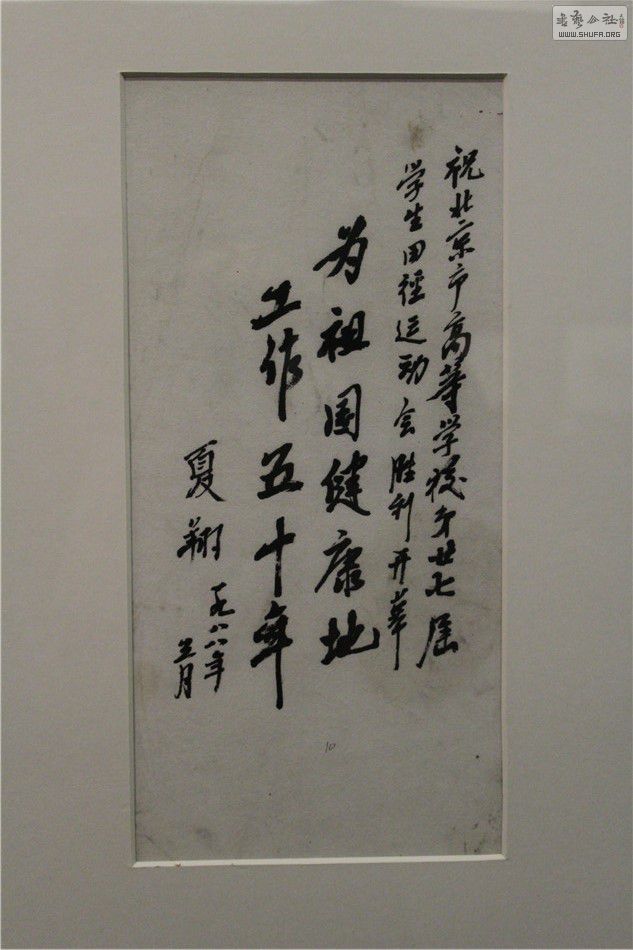 祝北京市高等学校第廿七届
学生田径运动会胜利开幕
为祖国健康地
工作五十年
夏翔
一九八八年
三月
10
书艺公社
WWW.SHUFA.ORG